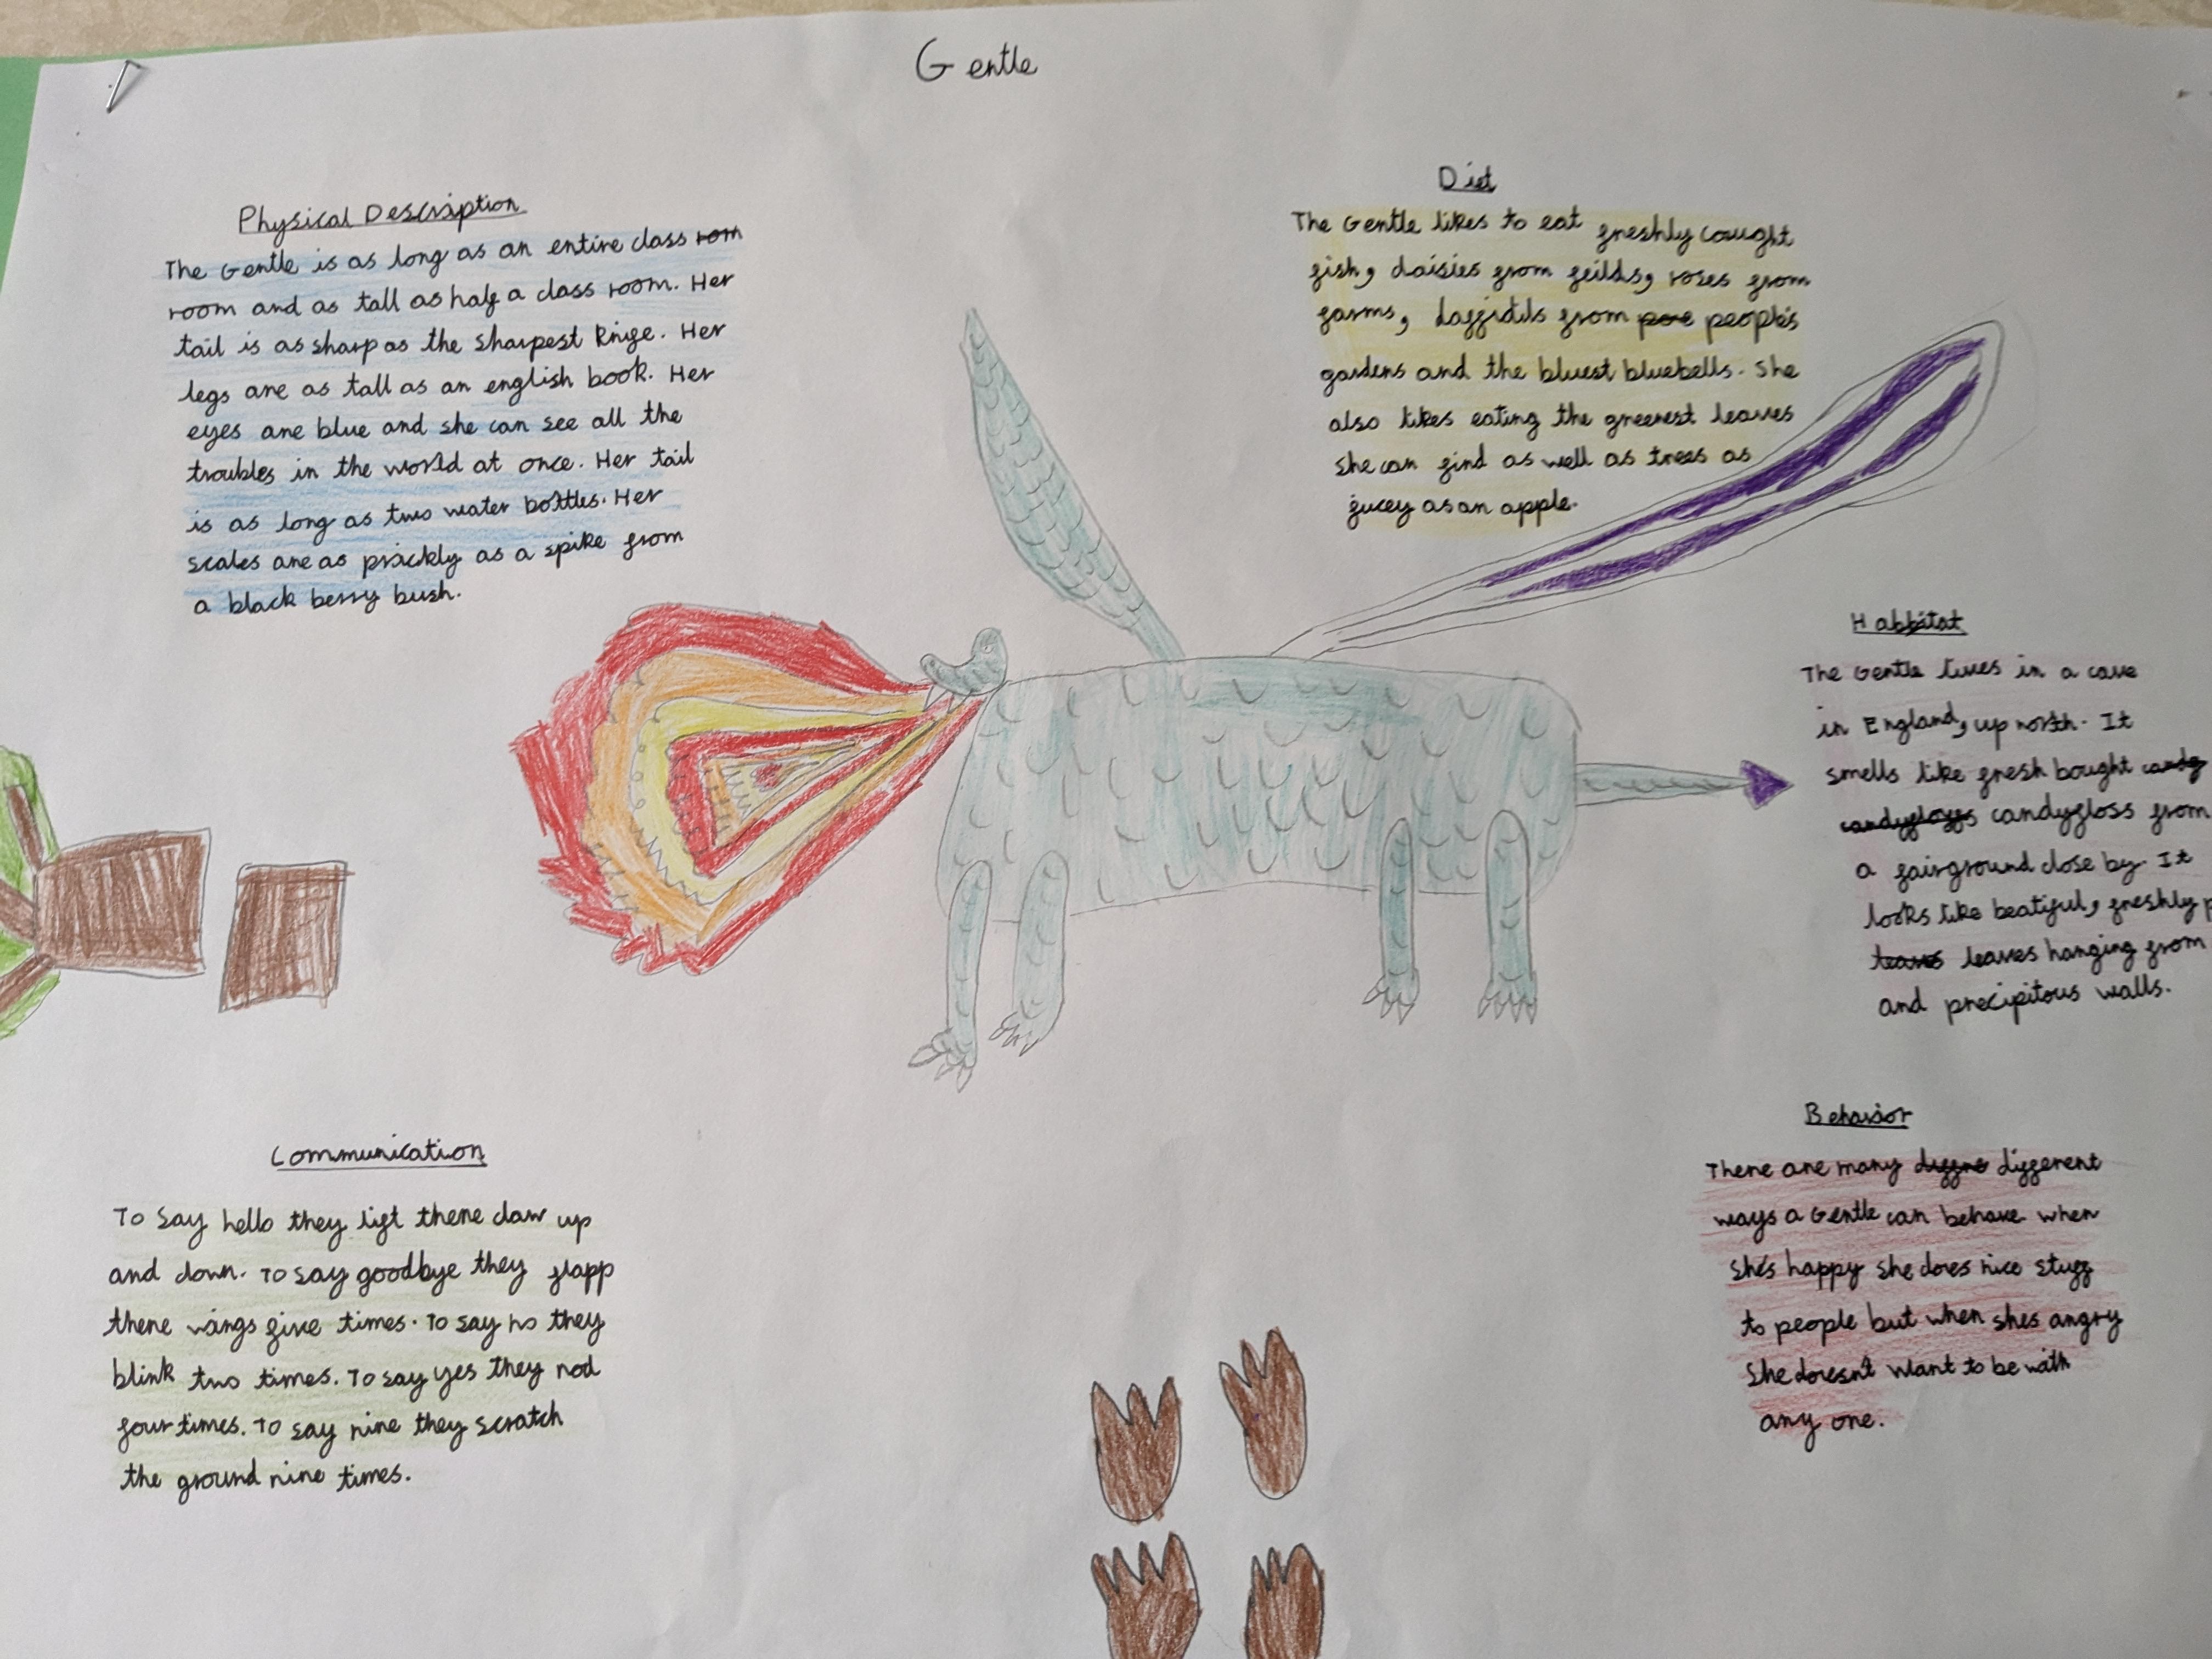 Gentle
Physical Description
The Gentle is as long as an entire class rom
room and as tall as half a class room. Her
tail is as sharp as the sharpest knife. Her
legs are as tall as an english book. Her
eyes are blue and she can see all the
troubles in the world at once. Her tail
is as long as two water bottles. Her
scales are as prickly as a spike from
a black berry bush.
Diet
The Gentle likes to eat freshly cought
fish, daisies from feilds, roses from
farms, daffidils from poe people's
gardens and the bluest bluebells. She
also likes eating the greenest leaves
she can find as well as trees as
jucey as an apple.
Habbitat
The Gentle lives in a cave
in England, up north. It
smells like fresh bought
candyfloss from
a fairground close by. It
looks like beatiful, freshly
leaves hanging from
and precipitous walls.
Communication
To say hello they lift there claw up
and down. To say goodbye they flapp
there wings five times. To say no they
blink two times. To say yes they nod
four times. To say nine they scratch
the ground nine times.
Behavior
There are many diffre different
ways a Gentle can behave when
she's happy she does nice stuff
to people but when shes angry
she doesn't want to be with
any one.